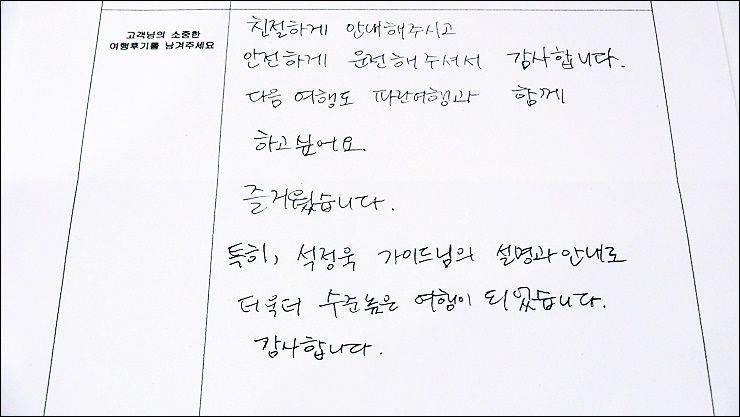 고객님의 소중한
여행후기를 남겨주세요
친절하게 안내해주시고
안전하게 운전해주셔서 감사합니다.
다음 여행도 파란여행과 함께
하고싶어요.
즐거웠습니다.
특히, 석정욱 가이드님의 설명과 안내로
더욱더 수준높은 여행이 되었습니다.
감사합니다.